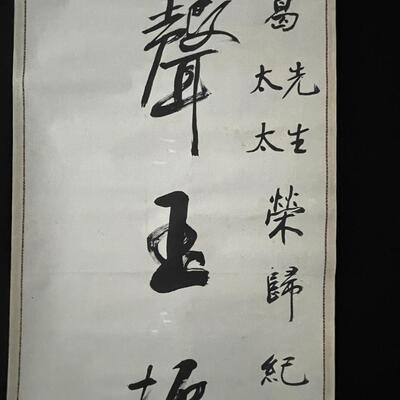 葛先生太太榮歸紀
聲玉